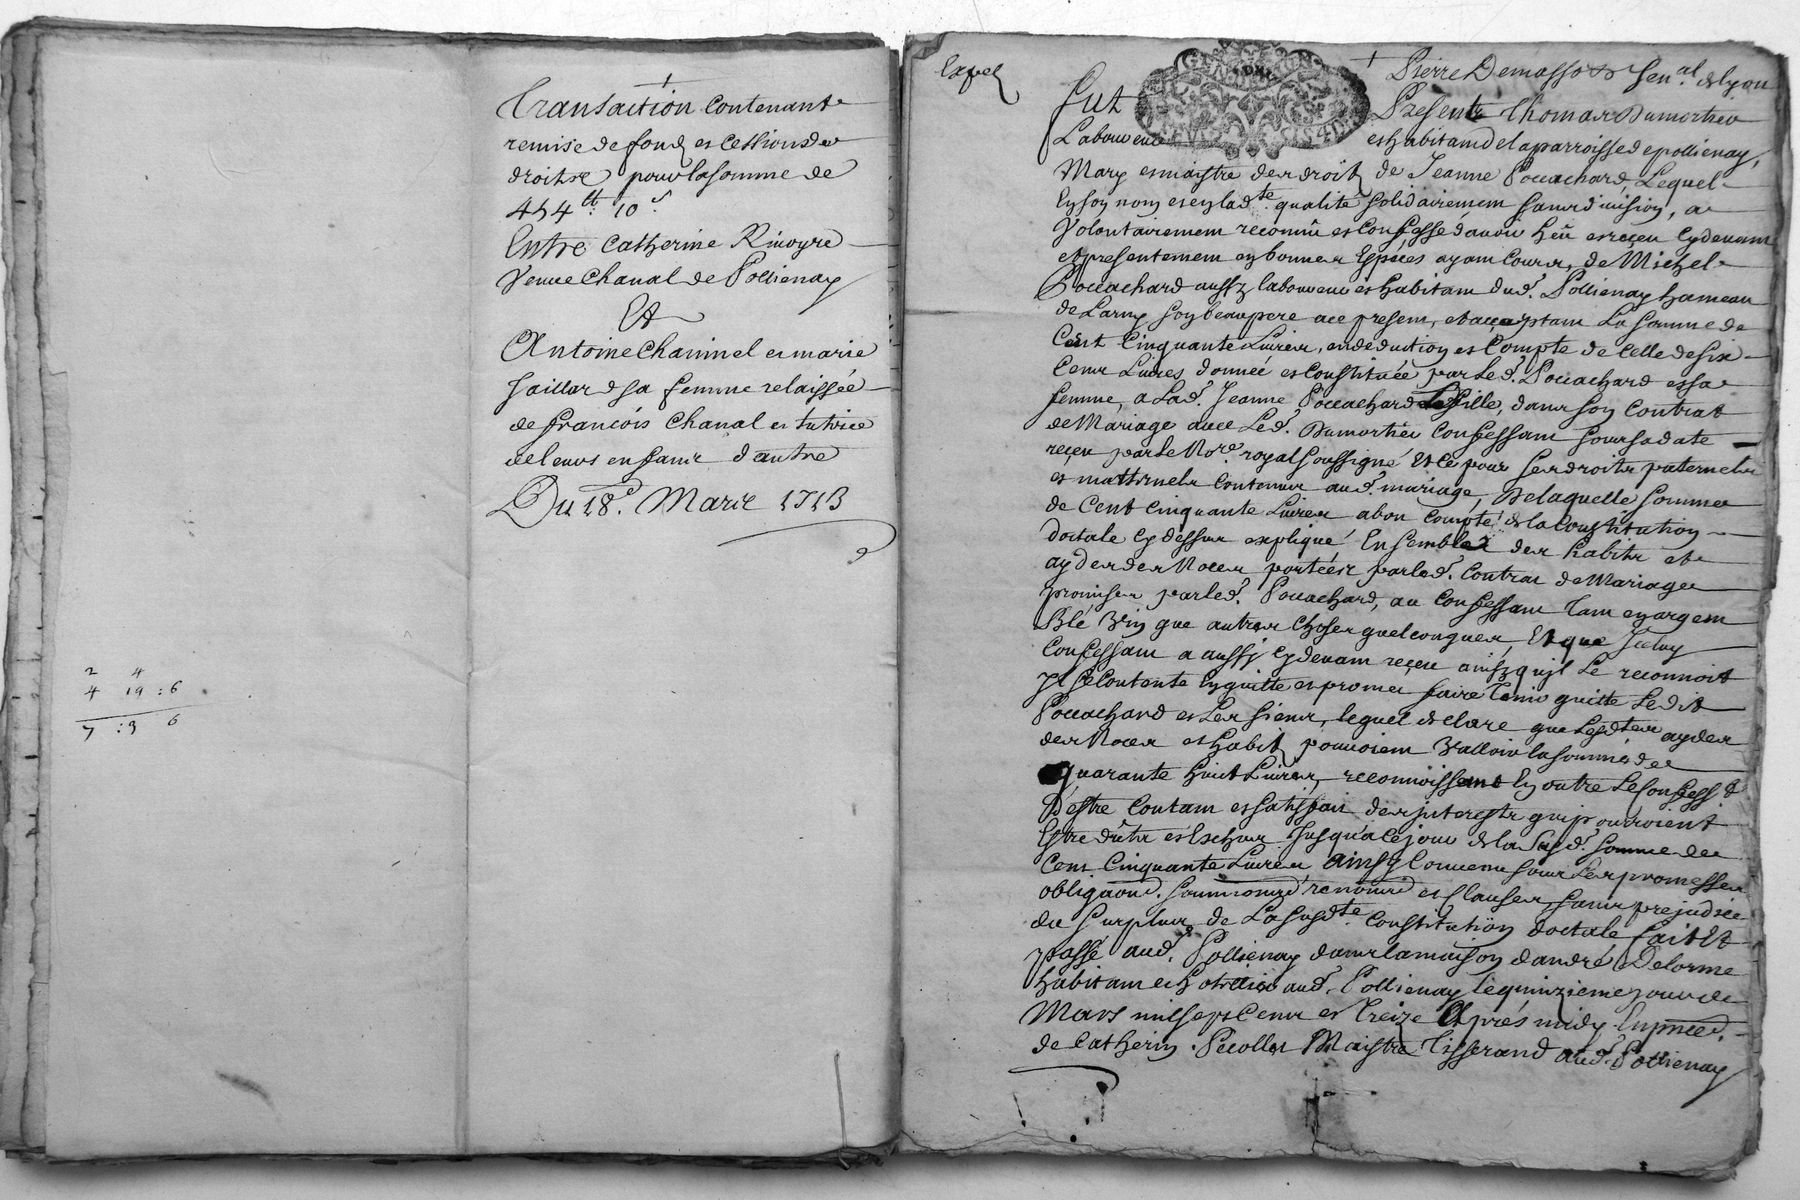 Transaction contenant
remise de fond et cession de
droitz pour la somme de
454 tt. 10 s.
Entre Catherine Rivoyre
Veuve Chanal de Pollienay
Et
Antoine Chaminel et marie
Jaillard sa femme relaissée
de françois Chanal et tutrice
de leurs enfans d'autre
Du 18e. Mars 1713
2 4
4 19 : 6
7 : 3 6
Exped
Pierre Demasso & Sen.al de Lyon
Fut Présent Thomas Dumortier
Laboureur et habitant de la parroisse de pollienay,
Mary et maistre des droitz de Jeanne Pouachard, Lequel
En son nom et en lad.te qualité solidairement sans division, a
Volontairement reconnû et confessé d'avoir heû et receu cydevant
et presentement en bonnes Espèces ayant cours, de Michel
Pouachard aussy laboureur et habitant dud. Pollienay hameau
de Larny son beaupere ace present, et acceptant La somme de
Cent Cinquante Livres, en déduction et Compte de Celle de six
Cens Livres donnée et constituée par Led. Pouachard et sa
femme, a Lad. Jeanne Pouachard fille, dans son Contrat
de Mariage avec Led. Dumortier Confessant sous sa date
receu par Le No.re royal soussigné Et ce pour ses droits paternels
et matternels contenus aud. mariage, De laquelle somme
de Cent Cinquante Livres a bon compte de la Constitution
doctale cy dessus expliqué Ensemble des habits et
aydes des Noces portées par led. Contrat de Mariage
promises par led. Pouachard, au Confessant Tant en argent
Blé Vin que autres choses quelconques, Et que Iceluy
Confessant a aussy cydevant receu ainsy qu'jl Le reconnoit
Jl se Contente En quitte et promet faire Tenir quitte Ledit
Pouachard et Les siens, lequel declare que Lesdtes aydes
des Noces et habitz pouvoient Valloir la somme de
quarante huit Livres, reconnoissant En outre Le Confess.t
D'estre Contant et satisfait des jnterestz qui pourroient
Estre dûhs et Escheus Jusqu'a ce jour de la Susd. somme de
Cent Cinquante Livres ainsy Convenu sous Les promesses
obligaõns. soumissions renonc. et Clauses, sans prejudice
du surplus de La susdte. Constitution doctale fait Et
passé aud. Pollienay dans la maison d'andré Delorme
habitant et hostellier aud. Pollienay le quinzieme jour de
Mars mil sept Cens et Treize Après midy. En pñce
de Catherin Pecollet Maistre Tisserand aud. Pollienay